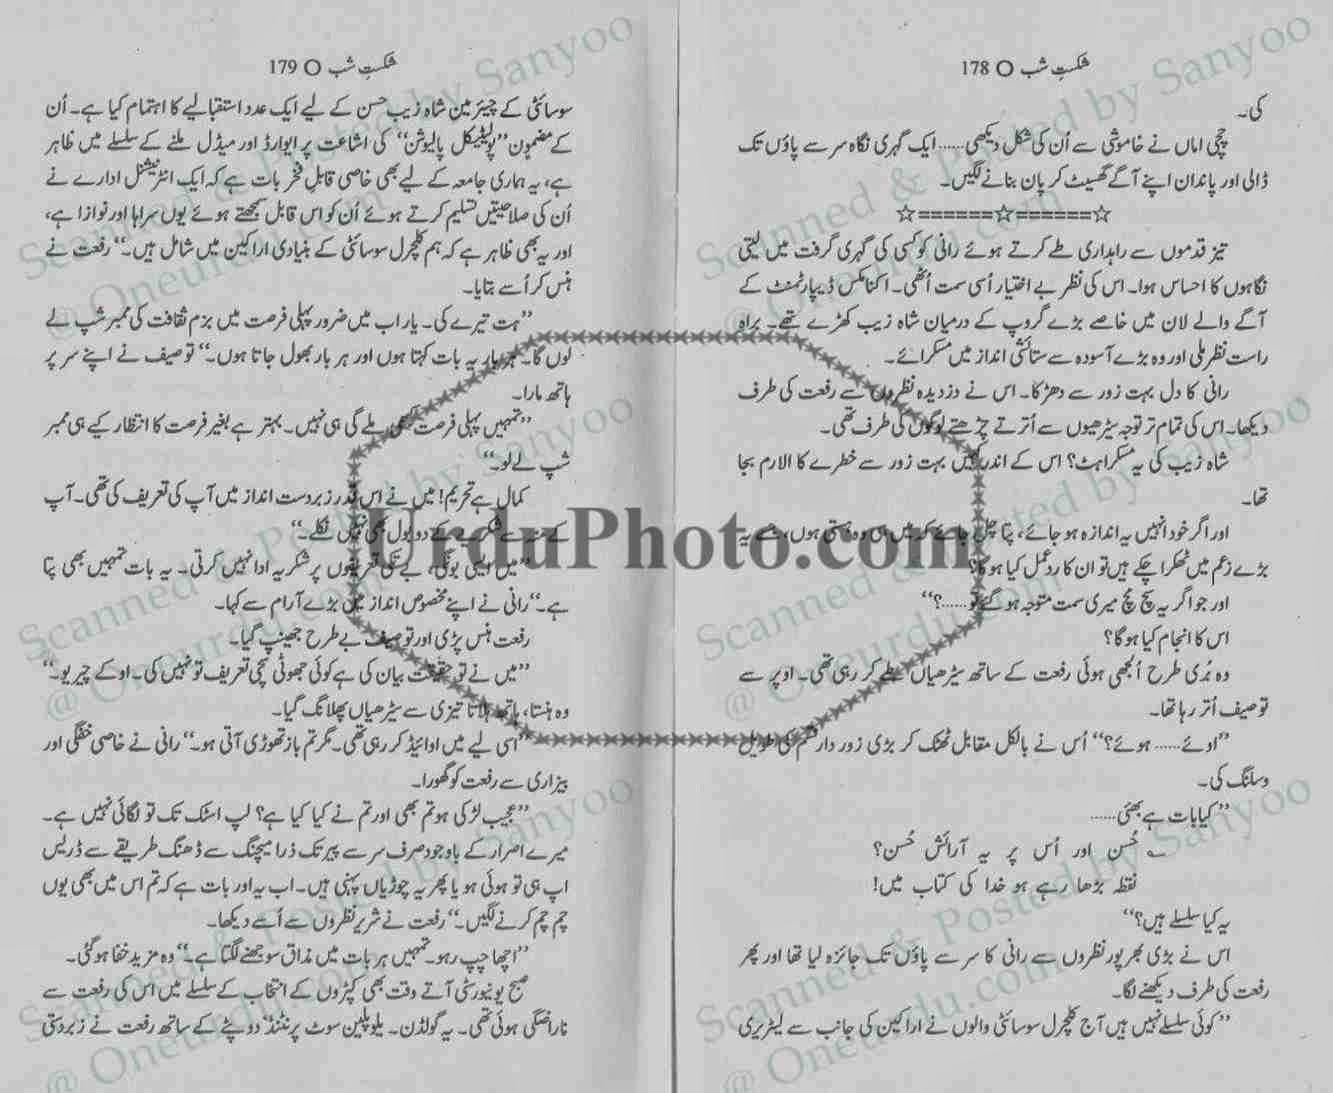 شکستِ شب O 178
کی۔
چچی اماں نے خاموشی سے اُن کی شکل دیکھی...... ایک گہری نگاہ سر سے پاؤں تک
ڈالی اور پاندان اپنے آگے گھسیٹ کر پان بنانے لگیں۔
☆======☆======☆
تیز قدموں سے راہداری طے کرتے ہوئے رانی کو کسی کی گہری گرفت میں لیتی
نگاہوں کا احساس ہوا۔ اس کی نظر بے اختیار اُسی سمت اُٹھی۔ اکنامکس ڈیپارٹمنٹ کے
آگے والے لان میں خاصے بڑے گروپ کے درمیان شاہ زیب کھڑے تھے۔ براہِ
راست نظر ملی اور وہ بڑے آسودہ سے ستائشی انداز میں مسکرائے۔
رانی کا دل بہت زور سے دھڑکا۔ اس نے دزدیدہ نظروں سے رفعت کی طرف
دیکھا۔ اس کی تمام تر توجہ سیڑھیوں سے اُترتے چڑھتے لوگوں کی طرف تھی۔
شاہ زیب کی یہ مسکراہٹ؟ اس کے اندر کہیں بہت زور سے خطرے کا الارم بجا
تھا۔
اور اگر خود انہیں یہ اندازہ ہو جائے، پتا چل جائے کہ میں ہی وہ ہستی ہوں، جسے یہ
بڑے زعم میں ٹھکرا چکے ہیں تو ان کا ردِعمل کیا ہو گا؟
اور جو اگر یہ سچ مچ میری سمت متوجہ ہو گئے تو......؟‘‘
اس کا انجام کیا ہو گا؟
وہ بُری طرح اُلجھی ہوئی رفعت کے ساتھ سیڑھیاں طے کر رہی تھی۔ اوپر سے
توصیف اُتر رہا تھا۔
’’اوئے...... ہوئے؟‘‘ اُس نے بالکل مقابل ٹھٹک کر بڑی زور دار قسم کی طویل
وسلنگ کی۔
’’کیا بات ہے بھئی......
؎ حُسن اور اُس پر یہ آرائش حُسن؟
نقطہ بڑھا رہے ہو خدا کی کتاب میں!
یہ کیا سلسلے ہیں؟‘‘
اس نے بڑی بھرپور نظروں سے رانی کا سر سے پاؤں تک جائزہ لیا تھا اور پھر
رفعت کی طرف دیکھنے لگا۔
’’کوئی سلسلے نہیں ہیں آج کلچرل سوسائٹی والوں نے اراکین کی جانب سے لیٹریری
شکستِ شب O 179
سوسائٹی کے چیئرمین شاہ زیب حسن کے لیے ایک عدد استقبالیے کا اہتمام کیا ہے۔ اُن
کے مضمون ’’پولیٹیکل پالیوشن‘‘ کی اشاعت پر ایوارڈ اور میڈل ملنے کے سلسلے میں ظاہر
ہے، یہ ہماری جامعہ کے لیے بھی خاصی قابلِ فخر بات ہے کہ ایک انٹرنیشنل ادارے نے
اُن کی صلاحیتیں تسلیم کرتے ہوئے اُن کو اس قابل سمجھتے ہوئے یوں سراہا اور نوازا ہے،
اور یہ بھی ظاہر ہے کہ ہم کلچرل سوسائٹی کے بنیادی اراکین میں شامل ہیں۔‘‘ رفعت نے
ہنس کر اُسے بتایا۔
’’ہت تیرے کی۔ یار اب میں ضرور پہلی فرصت میں بزمِ ثقافت کی ممبر شپ لے
لوں گا۔ ہر بار یہ بات کہتا ہوں اور ہر بار بھول جاتا ہوں۔‘‘ توصیف نے اپنے سر پر
ہاتھ مارا۔
’’تمہیں پہلی فرصت کبھی ملے گی ہی نہیں۔ بہتر ہے بغیر فرصت کا انتظار کیے ہی ممبر
شپ لے لو۔‘‘
کمال ہے تحریم! میں نے اس قدر زبردست انداز میں آپ کی تعریف کی تھی۔ آپ
کے منہ سے شکریے کے دو بول بھی نہیں نکلے۔‘‘
’’میں ایسی بونگی، بے تکی تعریفوں پر شکریہ ادا نہیں کرتی۔ یہ بات تمہیں بھی پتا
ہے۔‘‘ رانی نے اپنے مخصوص انداز میں بڑے آرام سے کہا۔
رفعت ہنس پڑی اور توصیف بے طرح جھینپ گیا۔
’’میں نے تو حقیقت بیان کی ہے کوئی جھوٹی سچی تعریف تو نہیں کی۔ اوکے چیریو۔‘‘
وہ ہنستا، ہاتھ ہلاتا تیزی سے سیڑھیاں پھلانگ گیا۔
’’اسی لیے میں اوائیڈ کر رہی تھی۔ مگر تم باز تھوڑی آتی ہو۔‘‘ رانی نے خاصی خفگی اور
بیزاری سے رفعت کو گھورا۔
’’عجیب لڑکی ہو تم بھی اور تم نے کیا کیا ہے؟ لپ اسٹک تک تو لگائی نہیں ہے۔
میرے اصرار کے باوجود صرف سر سے پیر تک ذرا میچنگ سے ڈھنگ طریقے سے ڈریس
اپ ہی تو ہوئی ہو یا پھر یہ چوڑیاں پہنی ہیں۔ اب یہ اور بات ہے کہ تم اس میں بھی یوں
چم چم کرنے لگیں۔‘‘ رفعت نے شریر نظروں سے اُسے دیکھا۔
’’اچھا چپ رہو۔ تمہیں ہر بات میں مذاق سوجھنے لگتا ہے۔‘‘ وہ مزید خفا ہو گئی۔
صبح یونیورسٹی آتے وقت بھی کپڑوں کے انتخاب کے سلسلے میں اس کی رفعت سے
ناراضگی ہوئی تھی۔ یہ گولڈن۔ یلو پلین سوٹ پرنٹڈ دوپٹے کے ساتھ رفعت نے زبردستی
UrduPhoto.com
Scanned & Posted by Sanyoo
@ Oneurdu.com